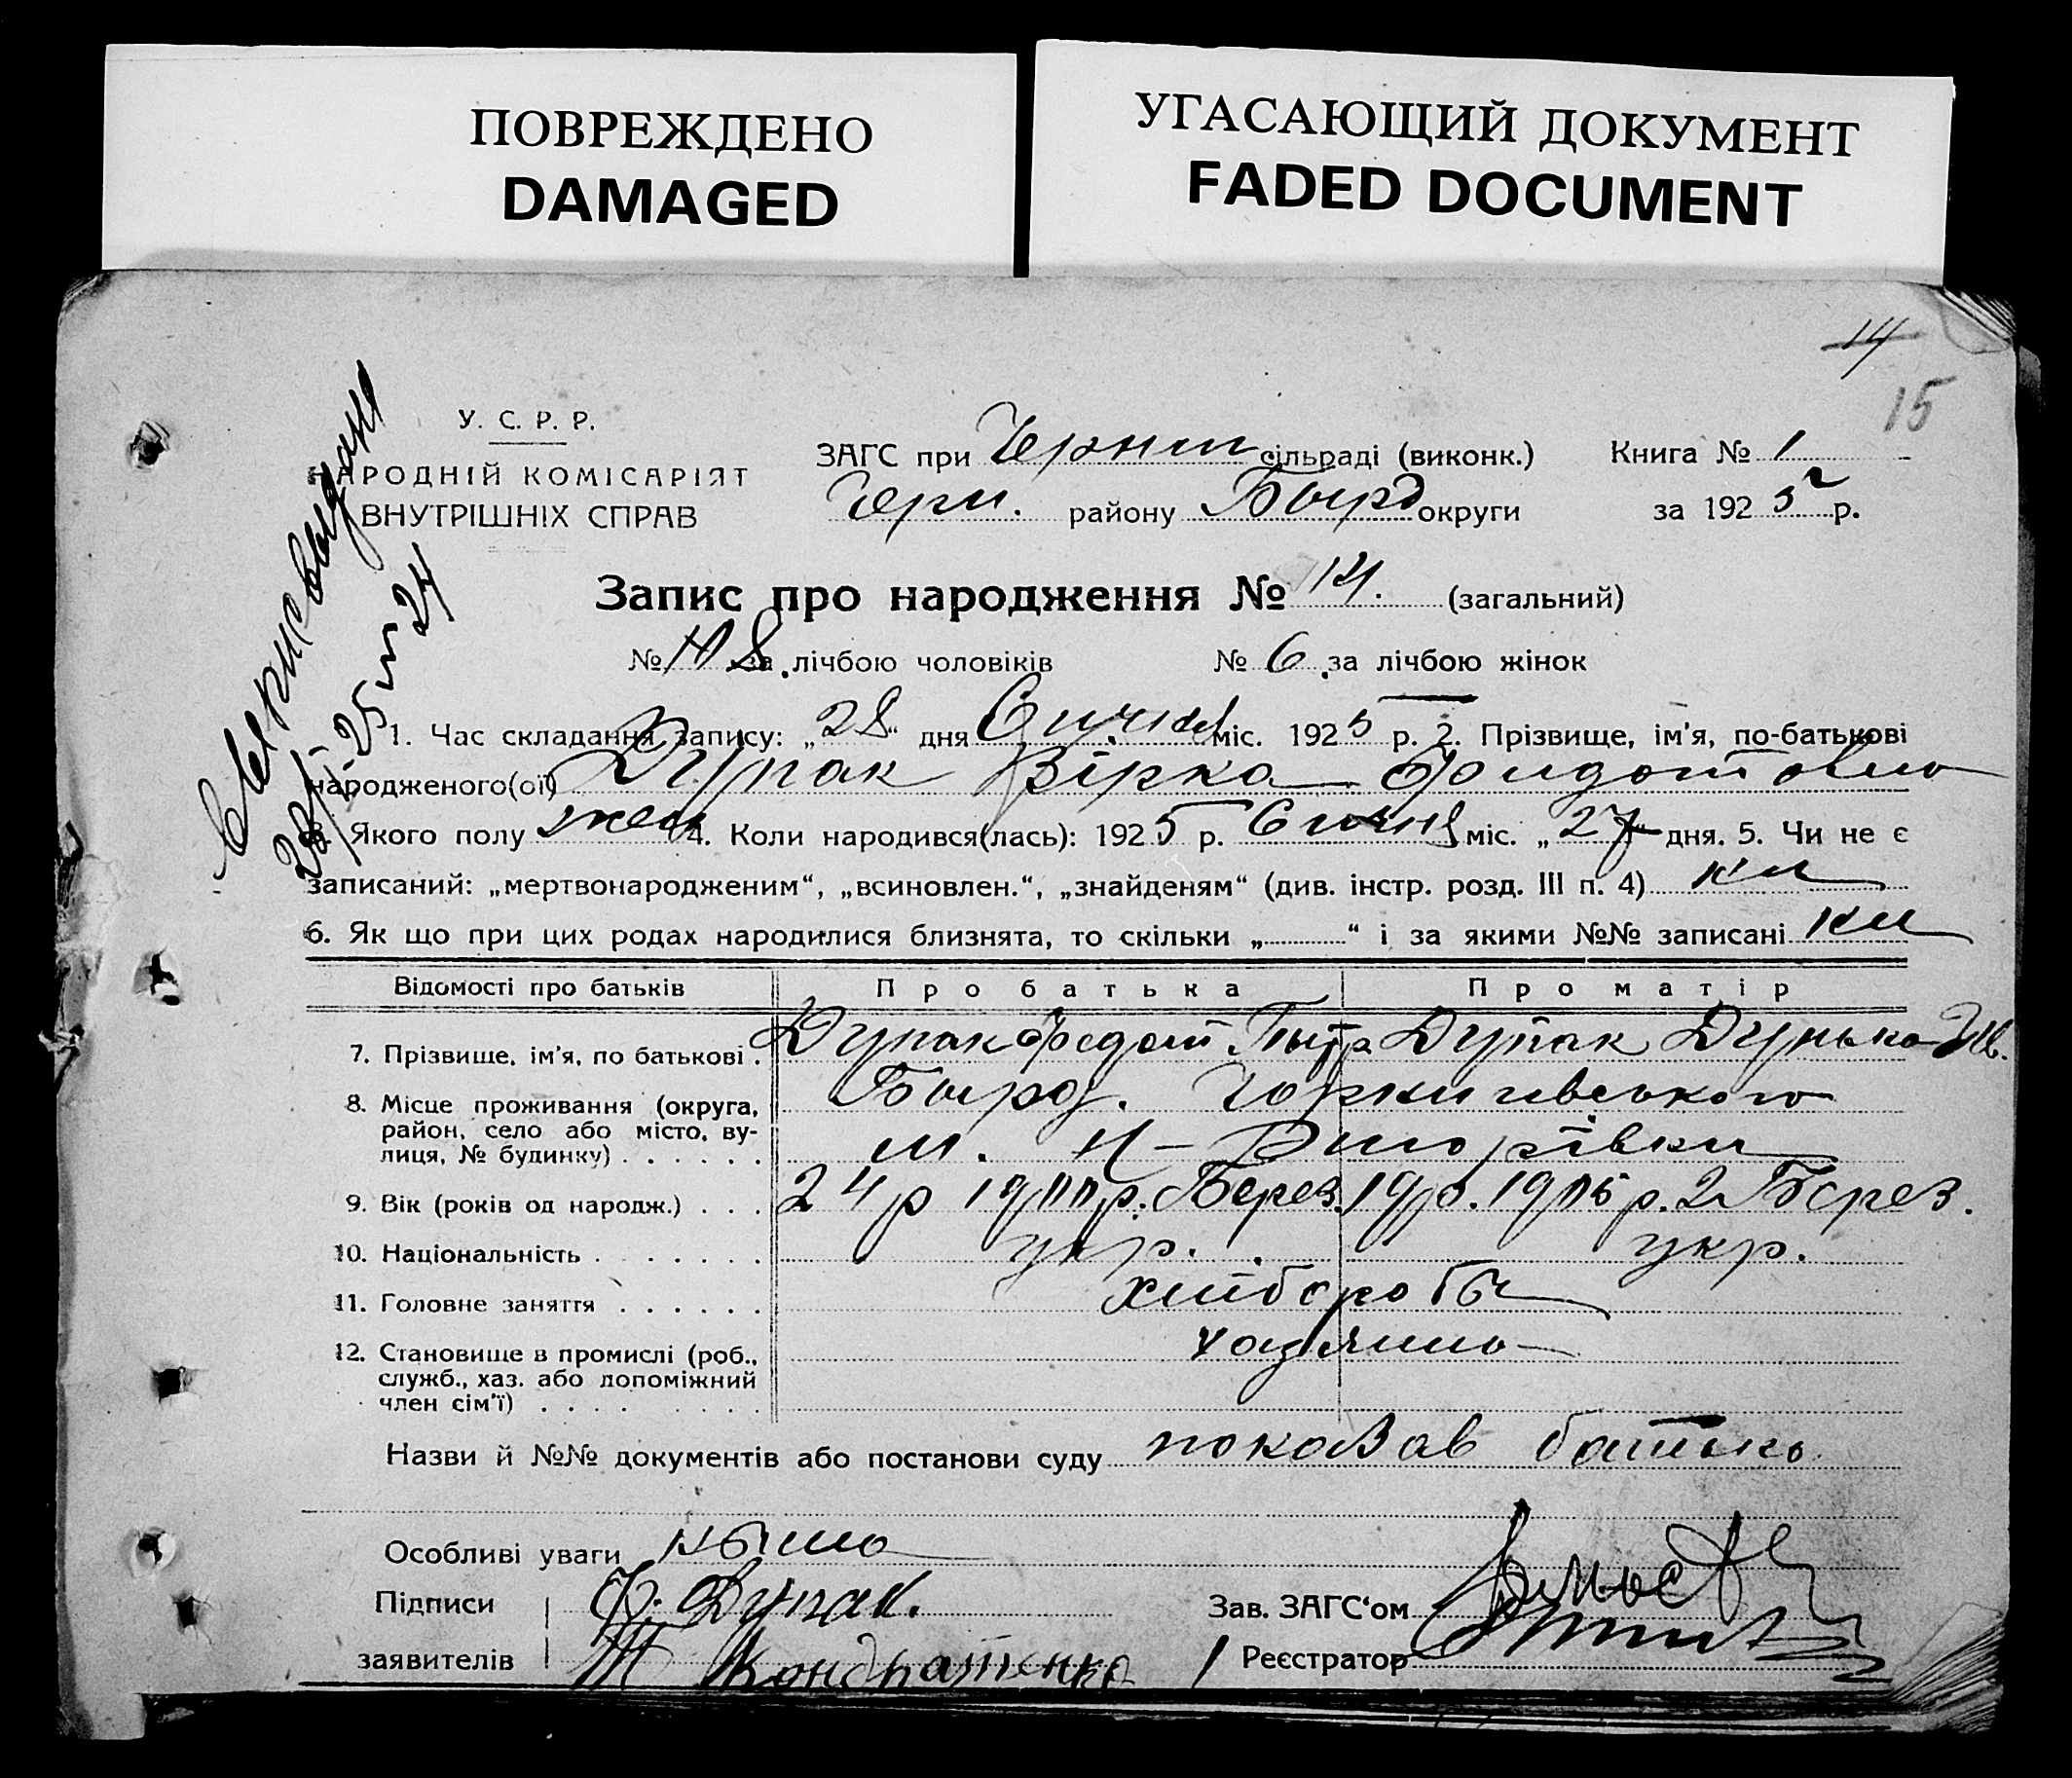 ПОВРЕЖДЕНО
DAMAGED
УГАСАЮЩИЙ ДОКУМЕНТ
FADED DOCUMENT
14
15
У. С. Р. Р.
НАРОДНІЙ КОМІСАРІЯТ
ВНУТРІШНІХ СПРАВ
ЗАГС при сільраді (виконк.) Книга № 1
Черн. району Бырд округи за 1925 р.
Запис про народження № 14. (загальний)
№ 8. за лічбою чоловіків № 6. за лічбою жінок
1. Час складання запису: „28“ дня Січня міс. 1925 р. 2. Прізвище, ім'я, по-батькові
народженого(ої) Дупак Вірка
3. Якого полу жен 4. Коли народився(лась): 1925 р. Січня міс. „27“ дня. 5. Чи не є
записаний: „мертвонародженим“, „всиновлен.“, „знайденям“ (див. інстр. розд. III п. 4) ни
6. Як що при цих родах народилися близнята, то скільки „ “ і за якими №№ записані ни
Відомості про батьків Про батька Про матір
7. Прізвище, ім'я, по батькові. Дупак Федот Дупак Дунька
8. Місце проживання (округа, Бырд.
район, село або місто, ву-
лиця, № будинку)
9. Вік (років од народж.) 24 р 19 р.
10. Національність укр. укр.
11. Головне заняття хліборобы
12. Становище в промислі (роб.,
служб., хаз. або допоміжний
член сім'ї)
Назви й №№ документів або постанови суду показав батько
Особливі уваги ныма
Підписи Ф. Дупак. Зав. ЗАГС'ом
заявителів Т Кондратенко Реєстратор